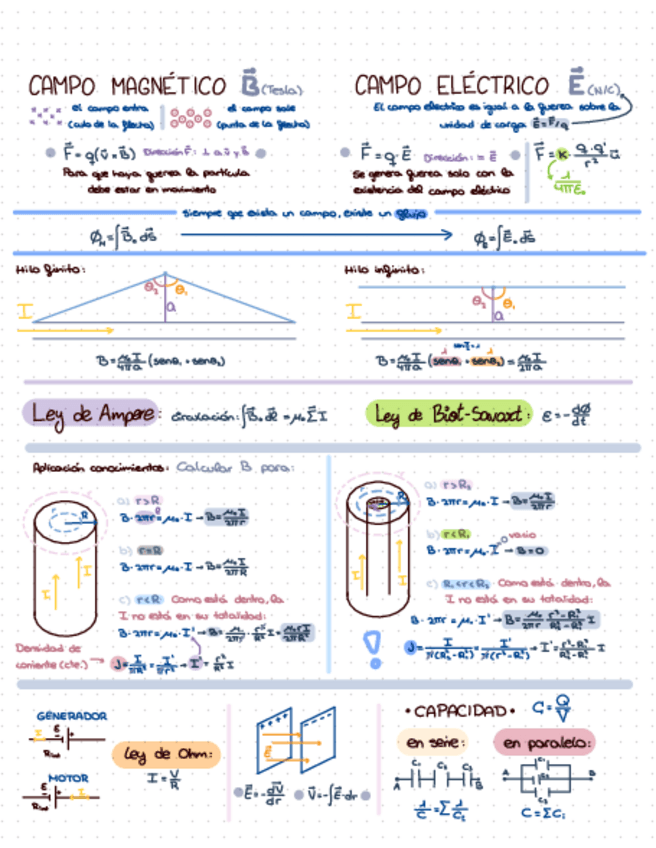 CAMPO MAGNÉTICO B⃗ (Tesla)
el campo entra
(cola de la flecha)
el campo sale
(punta de la flecha)
F⃗ = q(v⃗ × B⃗) Dirección F⃗: ⊥ a v⃗ y B⃗
Para que haya fuerza la partícula
debe estar en movimiento
CAMPO ELÉCTRICO E⃗ (N/C)
El campo eléctrico es igual a la fuerza sobre la
unidad de carga E⃗ = F⃗/q
F⃗ = q·E⃗ Dirección: = E⃗
Se genera fuerza solo con la
existencia del campo eléctrico
F⃗ = K · q·q'/r² u⃗
1/4πε₀
Siempre que exista un campo, existe un flujo
∫B⃗ . dS⃗ → ∫E⃗ . dS⃗
Hilo finito:
I θ₂ θ₁ a
B = μ₀I/4πa (senθ₁ + senθ₂)
Hilo infinito:
I θ₂ θ₁ a
B = μ₀I/4πa (senθ₁ + senθ₂) = μ₀I/2πa
Ley de Ampere: ∫B⃗ . dl⃗ = μ₀ΣI
Ley de Biot-Savart: ε = -dϕ/dt
Aplicación conocimientos: Calcular B para:
R
I I
a) r>R
B · 2πr = μ₀ · I → B = μ₀I/2πr
b) r=R
B · 2πr = μ₀ · I → B = μ₀I/2πR
c) r<R Como está dentro, la
I no está en su totalidad:
B · 2πr = μ₀ · I' → B = μ₀/2πr · r²/R² I = μ₀rI/2πR²
Densidad de
corriente (cte.) → J = I/πR² = I'/πr² → I' = r²/R² I
I I
a) r>R₂
B · 2πr = μ₀ · I → B = μ₀I/2πr
b) r<R₁ vacio
B · 2πr = μ₀ · I 0 → B = 0
c) R₁<r<R₂ Como está dentro, la
I no está en su totalidad:
B · 2πr = μ₀ · I' → B = μ₀/2πr r²-R₁²/R₂²-R₁² I
! J = I/π(R₂²-R₁²) = I'/π(r²-R₁²) → I' = r²-R₁²/R₂²-R₁² I
GENERADOR
I ε
MOTOR
ε I
Ley de Ohm:
I = V/R
E⃗
E⃗ = -dV⃗/dr
V⃗ = -∫E⃗ · dr
• CAPACIDAD • C = Q/V
en serie:
A C₁ C₂ C₃ B
1/C = Σ 1/Cᵢ
en paralelo:
A C₁ C₂ C₃ B
C = ΣCᵢ